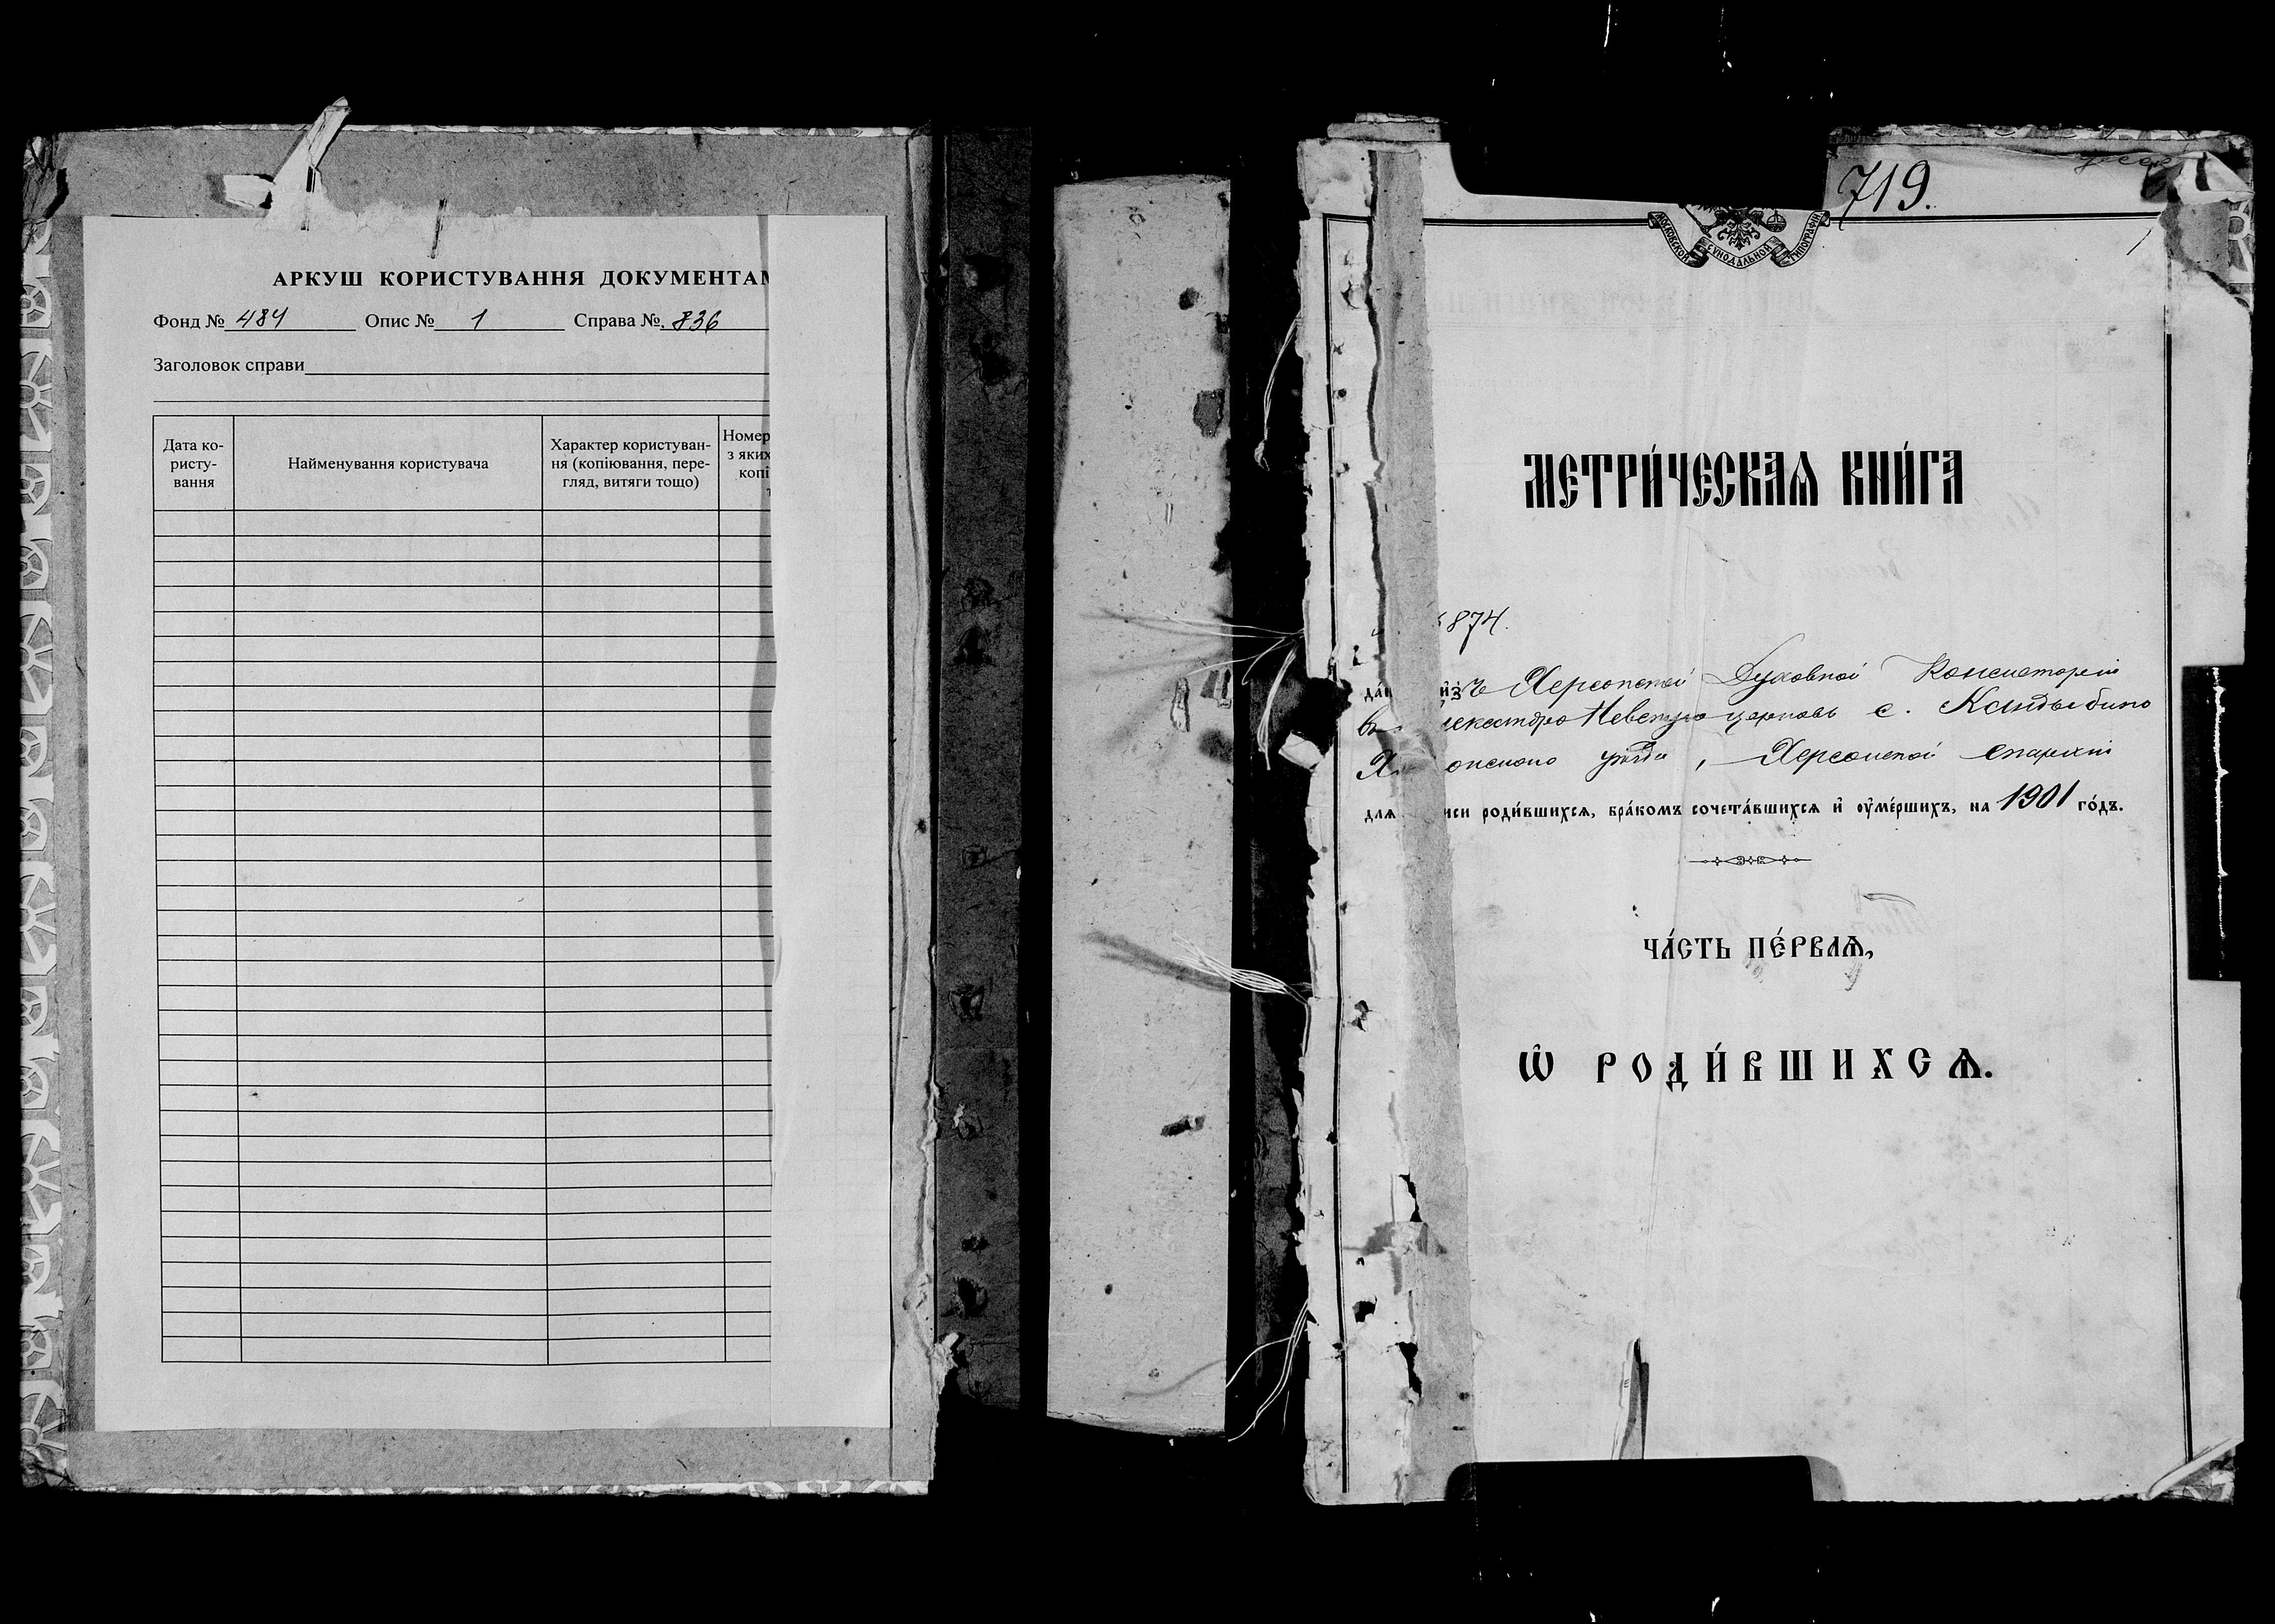 АРКУШ КОРИСТУВАННЯ ДОКУМЕНТАМ
Фонд № 484 Опис № 1 Справа №. 836
Заголовок справи
Дата ко-
ристу-
вання
Найменування користувача
Характер користуван-
ня (копіювання, пере-
гляд, витяги тощо)
Номер
з яких
копі
719.
МОСКОВСКОЙ СУНОДАЛЬНОЙ ТИПОГРАФІИ
МЕТРИ́ЧЕСКАѦ КНИ́ГА
874.
и҆зъ Херсонской Духовной Консисторіи
въ лександро Невскую церковь с. Кандыбино
Х онского уѣзда, Херсонской епархіи
для иси роди́вшихсѧ, бра́комъ сочета́вшихсѧ и҆ ѹ҆ме́ршихъ, на 1901 го́дъ.
ЧА́СТЬ ПЕ́РВАѦ,
Ѡ҆ РОДИ́ВШИХСѦ.